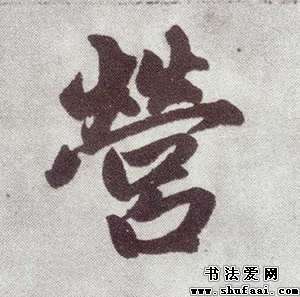 營
书法爱网
www.shufaai.com